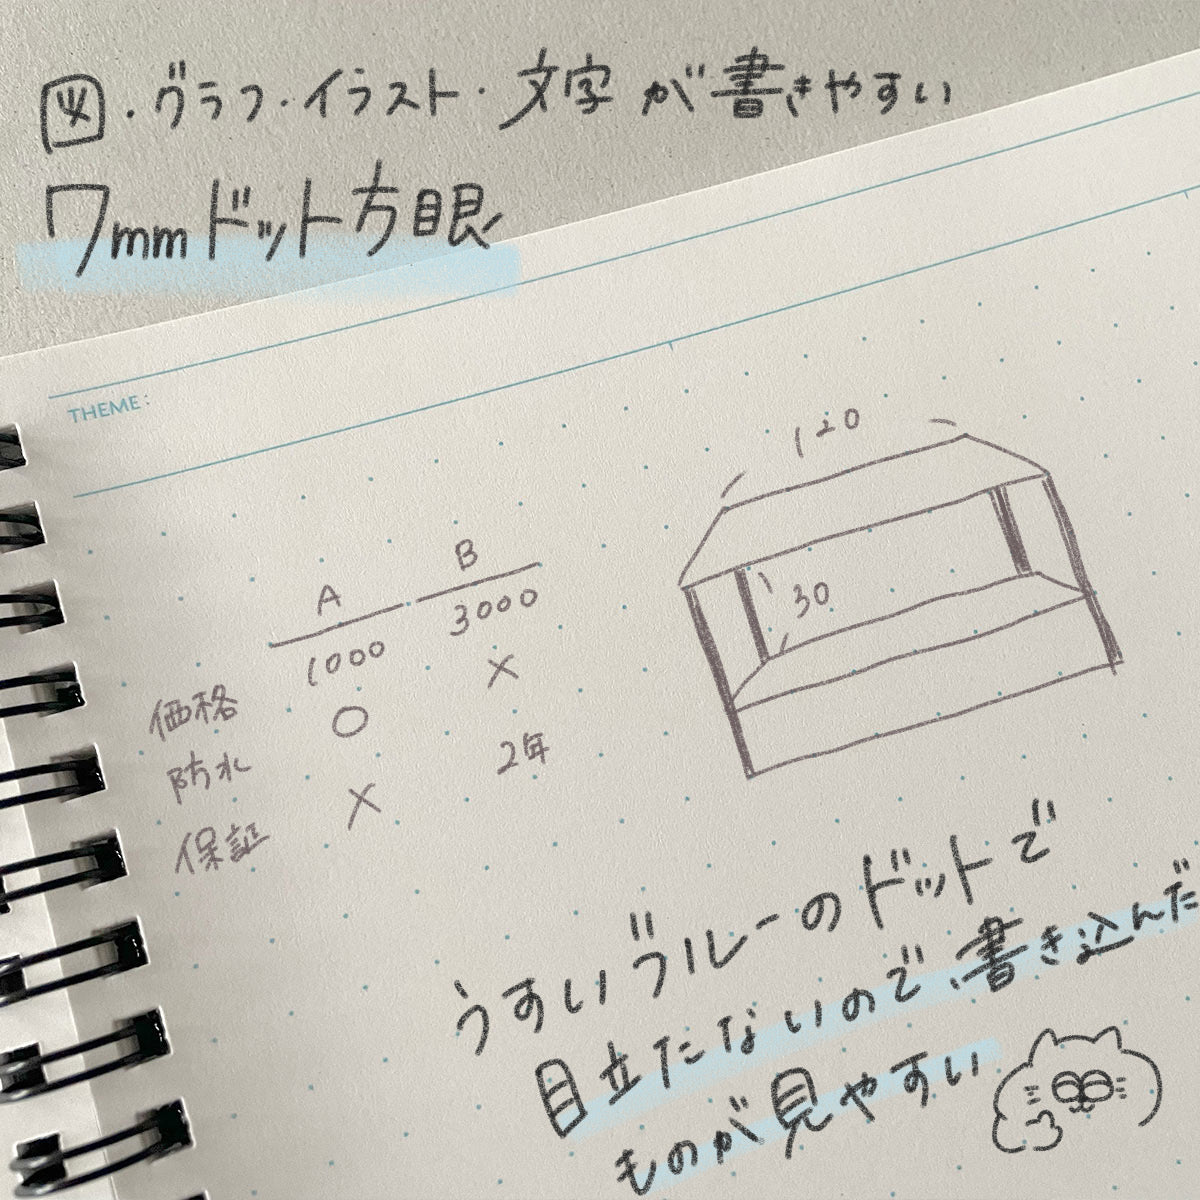 図・グラフ・イラスト・文字が書きやすい
7mmドット方眼
THEME:
A B
価格 1000 3000
防水 ○ ×
保証 × 2年
120
30
うすいブルーのドットで
目立たないので、書き込んだ
ものが見やすい